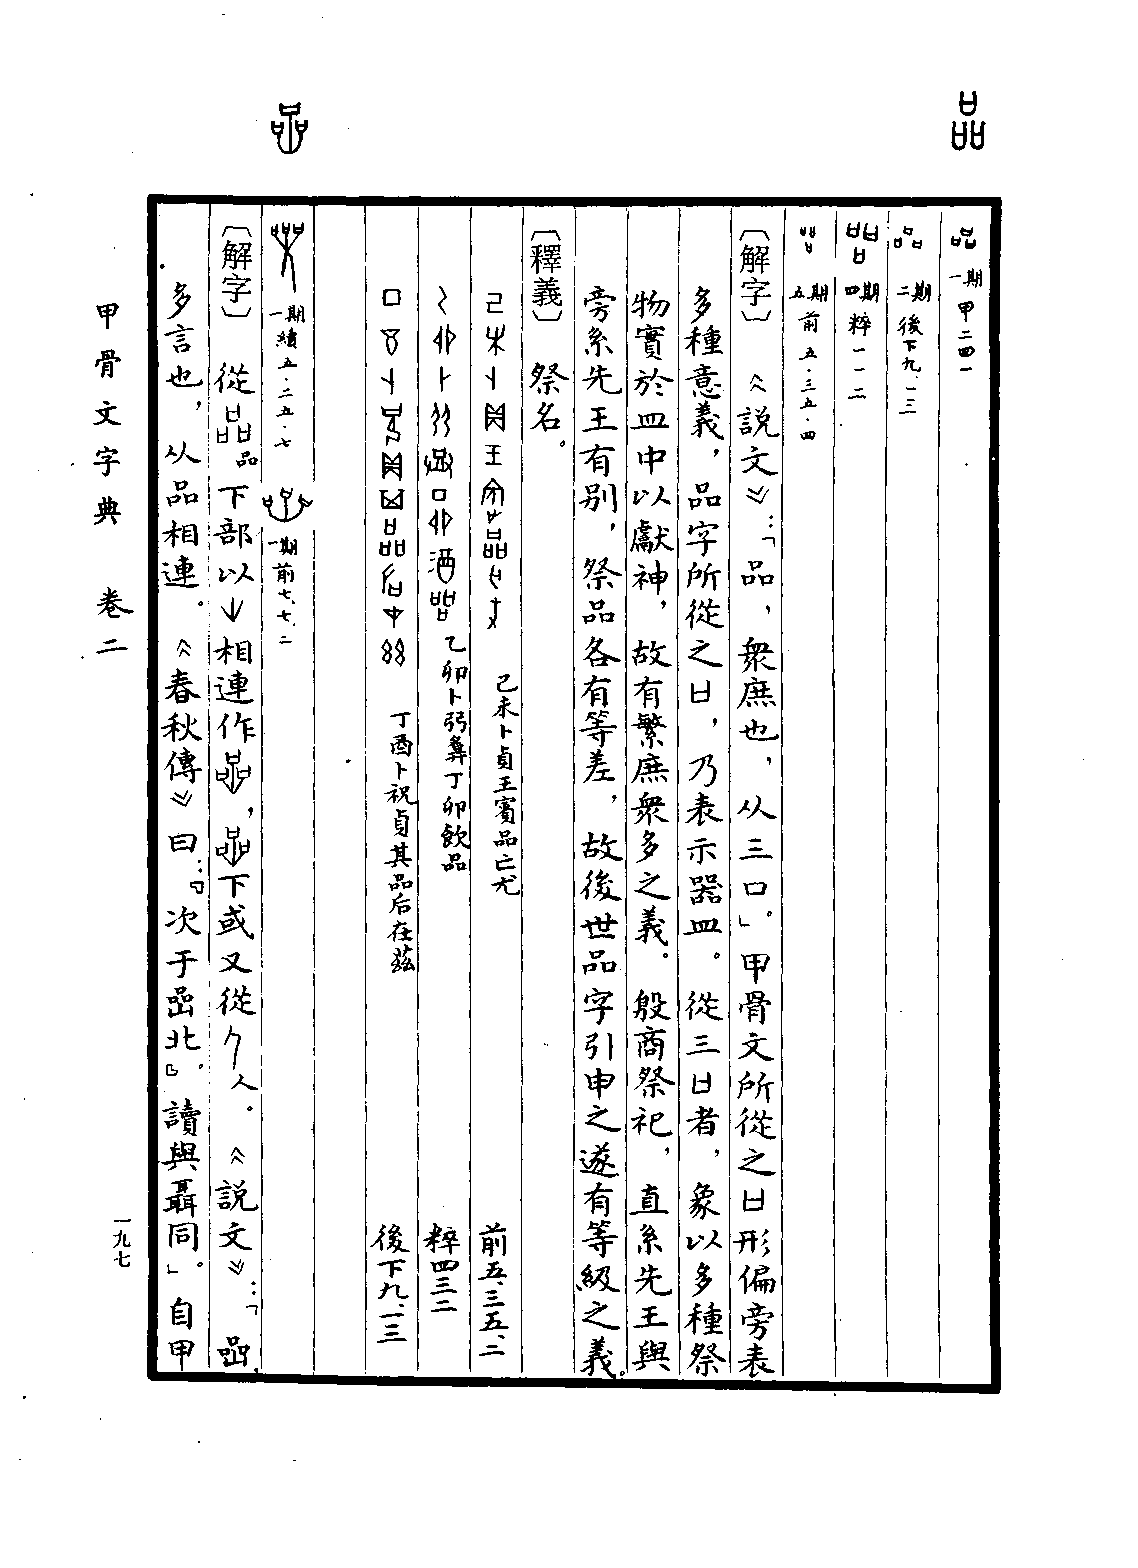 品
一期 甲二四一
二期 後下九.一三
四期 粹一一二
五期 前五.三五.四
〔解字〕 《說文》：「品，衆庶也，从三口。」甲骨文所從之㠯形偏旁表
多種意義，品字所從之㠯，乃表示器皿。從三㠯者，象以多種祭
物實於皿中以獻神，故有繁庶衆多之義。殷商祭祀，直系先王與
旁系先王有别，祭品各有等差，故後世品字引申之遂有等級之義。
〔釋義〕 祭名。
己未卜貞王賓品亡尤 前五、三五、二
乙卯卜弜彝丁卯飲品 粹四三二
丁酉卜祝貞其品后在茲 後下九、一三
嵒
一期 續五.二五.七 一期 前七.七.二
〔解字〕 從品下部以相連作，下或又從人。《說文》：「嵒
多言也，从品相連。《春秋傳》曰：『次于嵒北。』讀與聶同。」自甲
甲骨文字典 卷二
一九七